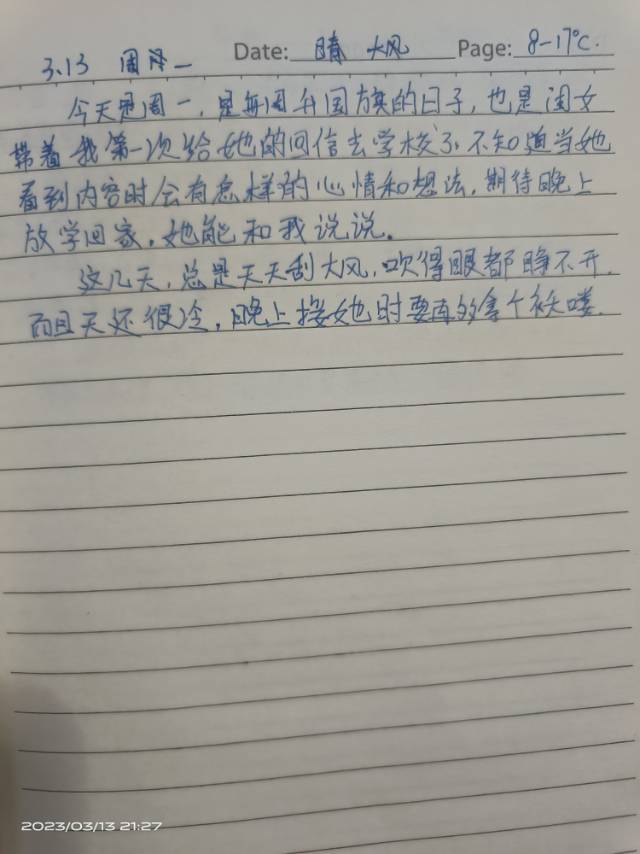 3.13 周一 Date: 晴 大风 Page: 8-17℃.
今天是周一,是每周升国旗的日子,也是闺女
带着我第一次给她的回信去学校了.不知道当她
看到内容时会有怎样的心情和想法,期待晚上
放学回家,她能和我说说。
这几天,总是天天刮大风,吹得眼都睁不开.
而且天还很冷,晚上接她时要再多拿个袄喽.
2023/03/13 21:27